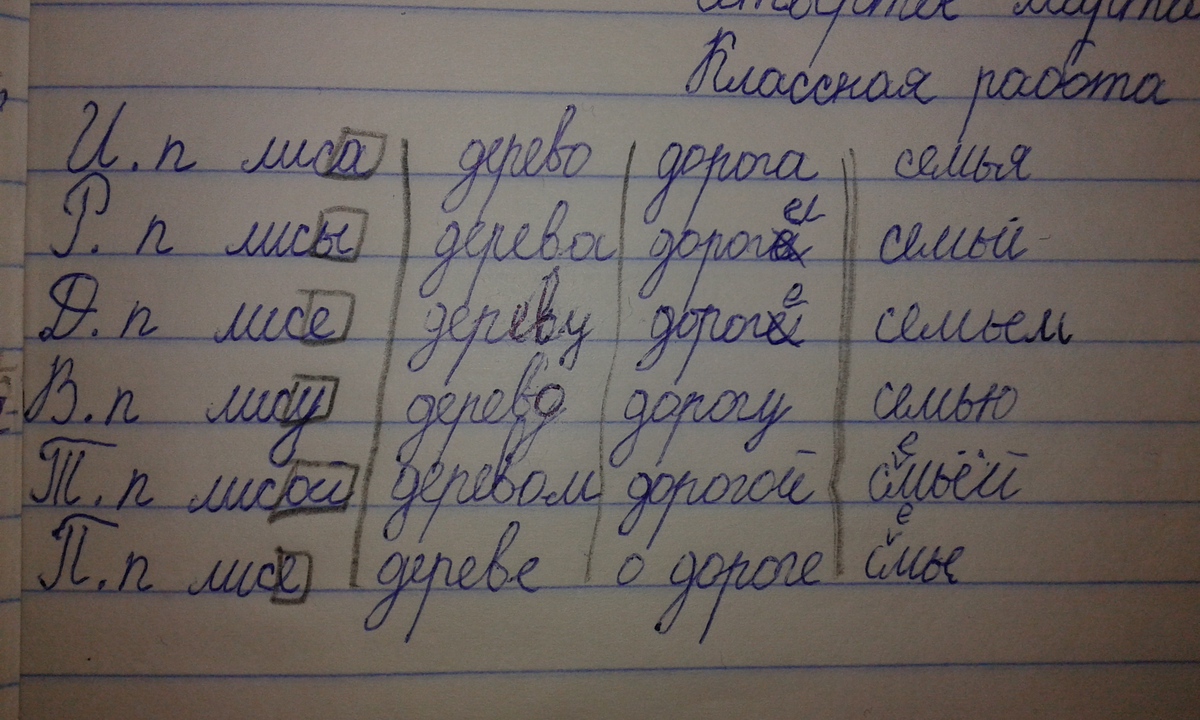 Классная работа
И.п лиса дерево дорога семья
Р.п лисы дерева дороги семьи
Д.п лисе дереву дороге семьем
В.п лису дерево дорогу семью
Т.п лисой деревом дорогой семьёй
П.п лисе дереве о дороге семье